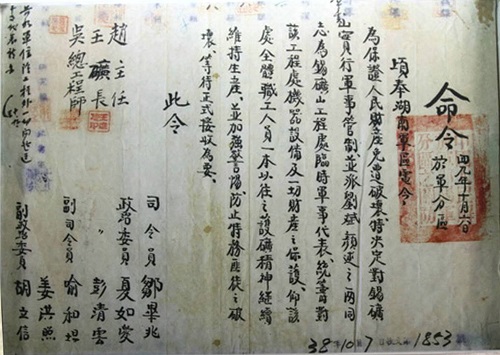 命令
四九年十月六日
於軍分區
頃奉湖南軍區電令：
為保證人民財產免遭破壞特決定對錫礦
山實行軍事管制並派劉斌顏連之兩同
志為錫礦山工程處臨時軍事代表統籌對
該工程處機器設備及一切財產之保護。仰該
處全體職工人員一本以往之護礦精神繼續
維持生產、並加強警惕防止特務匪徒之破
壞、等待正式接收為要。
此令
司令員鄒畢兆
政治委員夏如爱
〃彭清雲
副司令員喻和坦
姜洪照
副政治委員胡立信
趙主任
王礦長
吳總工程師
38年10月7日
1853